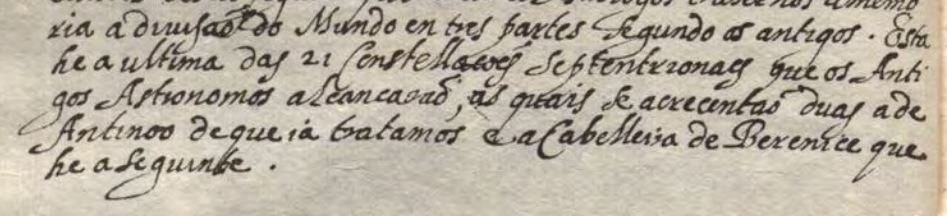 trasernos a memo
ria a diuisaõ do Mundo en tres partes segundo os antigos. Esta
he a ultima das 21 Constellacoẽs Septentrionaes que os Anti
gos Astronomos alcancaraõ, às quais se acrecentaõ duas a de
Antinoo de que ia tratamos e a Cabelleira de Berenice que
he a seguinte.